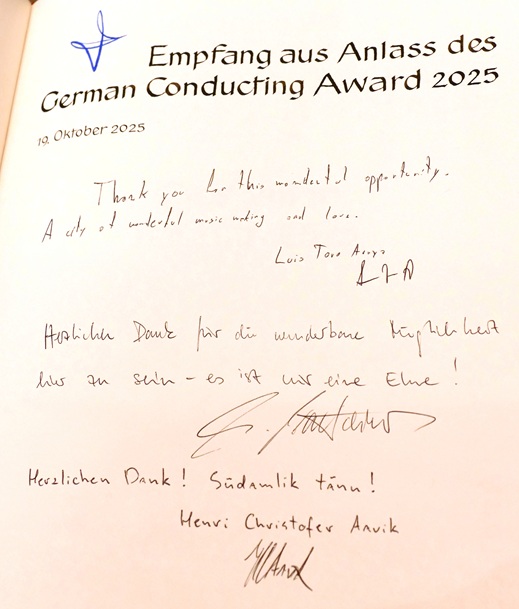 Empfang aus Anlass des
German Conducting Award 2025
19. Oktober 2025
Thank you for this wonderful opportunity.
A city of wonderful music making and love.
Luis Toro Araya
LTA
Herzlichen Dank für die wunderbare Möglichkeit
hier zu sein – es ist mir eine Ehre!
Herzlichen Dank! Südamlik tänu!
Henri Christofer Aavik